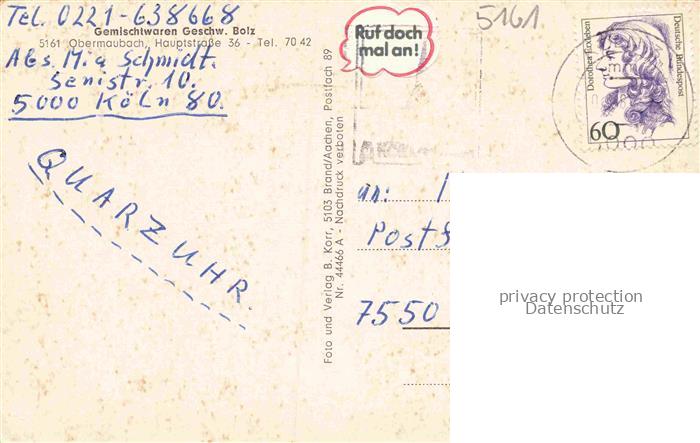 Tel. 0221-638668
Gemischtwaren Geschw. Bolz
5161 Obermaubach, Hauptstraße 36 - Tel. 70 42
Abs. M. a Schmidt.
Senistr. 10.
5000 Köln 80.
QUARZUHR.
Foto und Verlag B. Korr, 5103 Brand/Aachen, Postfach 89
Nr. 44466 A - Nachdruck verboten
Ruf doch
mal an!
5161.
Dorothea Erxleben
Deutsche Bundespost
60
an:
Postf
7550
privacy protection
Datenschutz